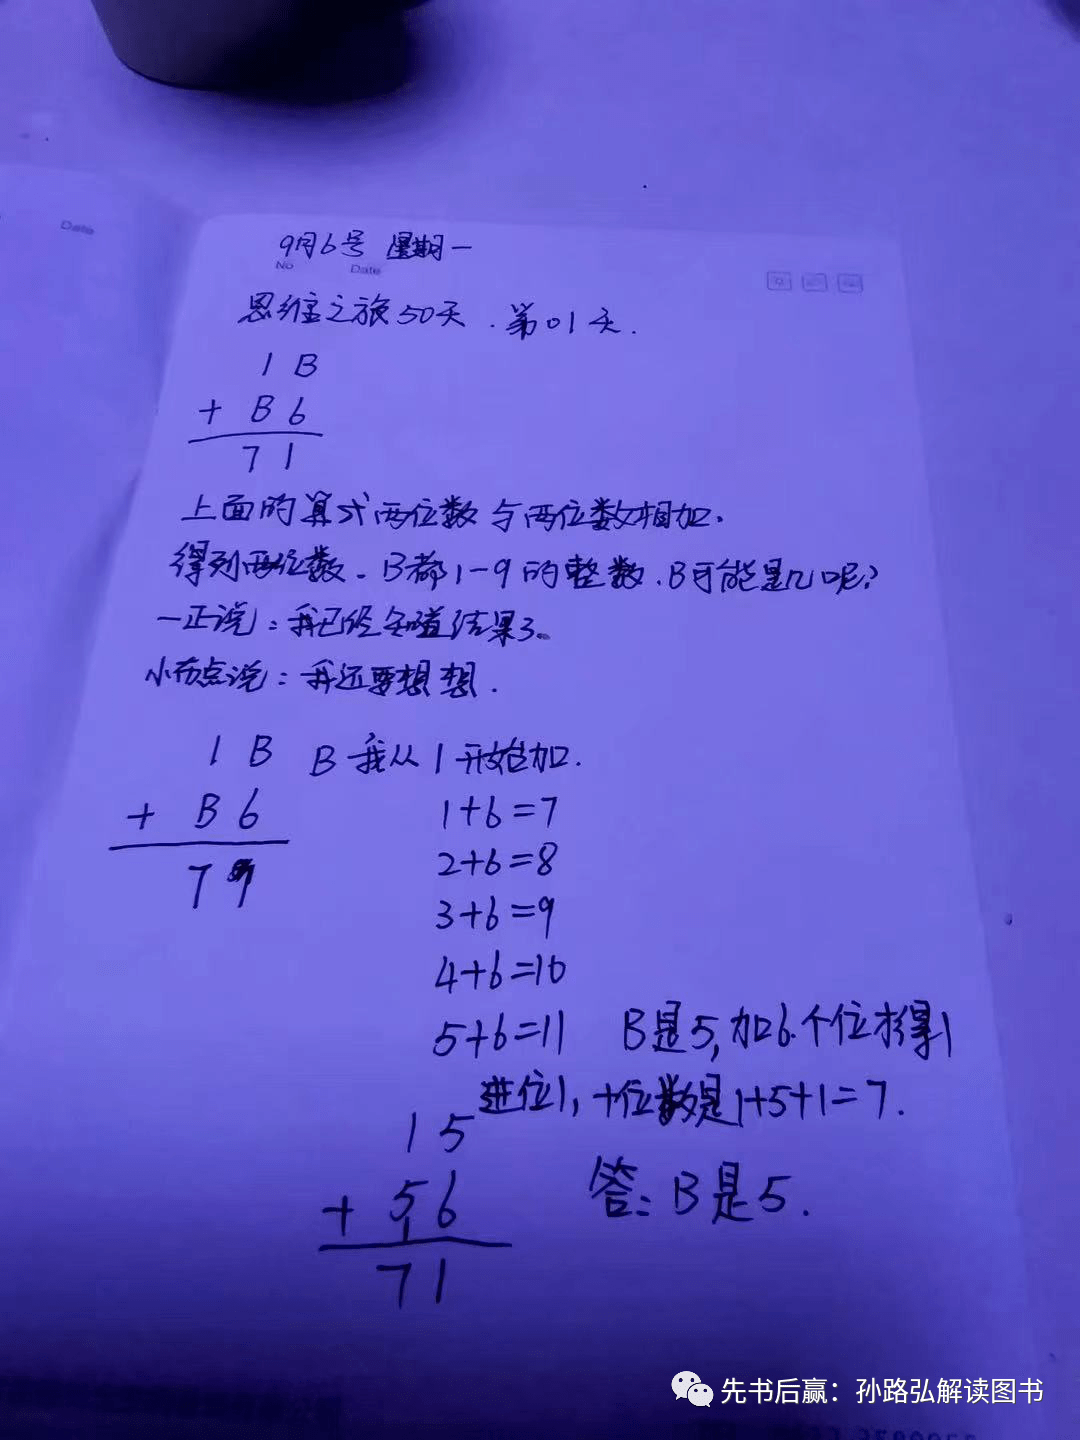 Date
9月6号 星期一
No Date
思维之旅50天.第01天.
1 B
+ B 6
7 1
上面的算式两位数与两位数相加.
得到两位数.B都1-9的整数.B可能是几呢?
一正说:我已经知道结果了。
小布点说:我还要想想.
1 B B我从1开始加.
+ B 6 1+6=7
7 1 2+6=8
3+6=9
4+6=10
5+6=11 B是5,加6.个位才得1
进位1,十位数是1+5+1=7.
1 5
+ 5 6 答:B是5.
1
7 1
先书后赢:孙路弘解读图书